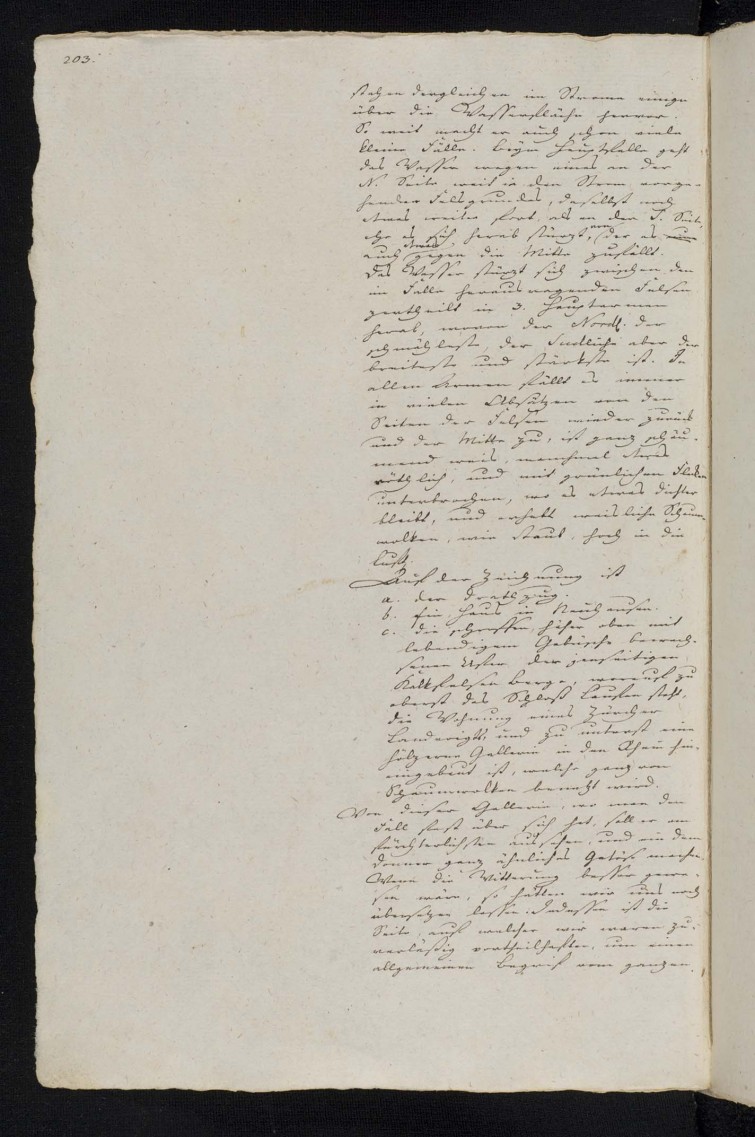 203.
stehen dergleichen im Strome einige
über die Wasserfläche hervor.
So weit macht er auch schon viele
kleine Fälle. Beym Hauptfalle geht
das Wasser wegen eines an der
N. Seite weit in den Strom vorge-
henden Felsgrundes, daselbst noch
etwas weiter fort, als an der S. Seite,
ehe es sich herab stürzt, der es
auch etwas gegen die Mitte zufällt.
Das Wasser stürzt sich zwischen den
im Falle herausragenden Felsen
zertheilt in 3. Hauptarmen
herab, wovon der Nördl. der
schmählste, der Südliche aber der
breiteste und stärkste ist. In
allen Armen fällt es immer
in vielen Absätzen von den
Seiten der Felsen wieder zurük
und der Mitte zu, ist ganz schäu-
mend weis, manchmal etwas
röthlich, und mit grünlichen Fleken
unterbrochen, wo es etwas dichter
bleibt, und erhebt weisliche Schaum-
wolken, wie Staub, hoch in die
Luft.
Auf der Zeichnung ist
a. der Drathzug.
b. Ein Haus in Neuhausen.
c. die schroffen, höher oben mit
lebendigem Gebüsche bewach-
senen Ufer der jenseitigen
Kalkfelsen Berge, worauf zu
oberst das Schloß Laufen steht,
die Wohnung eines Zürcher
Landvogts, und zu unterst eine
hölzerne Gallerie in den Rhein hin-
eingebaut ist, welche ganz von
Schaumwolken benetzt wird.
Von dieser Gallerie, wo man den
Fall fast über sich hat, soll er am
fürchterlichsten aussehen, und ein dem
Donner ganz ähnliches Getöse machen.
Wenn die Witterung besser gewe-
sen wäre, so hätten wir uns noch
übersetzen lassen. Indessen ist die
Seite, auf welcher wir waren zu-
verläßig vortheilhafter, um einen
allgemeinen Begrif vom ganzen